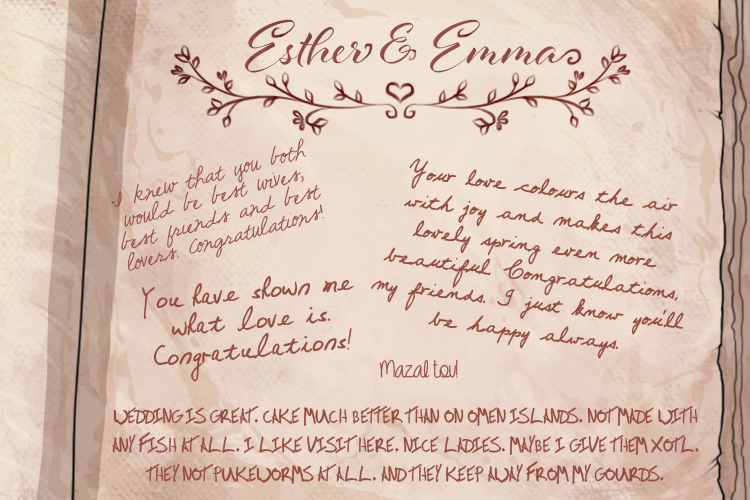 Esther & Emma
I knew that you both
would be best wives,
best friends and best
lovers. Congratulations!
Your love colours the air
with joy and makes this
lovely spring even more
beautiful Congratulations,
my friends. I just know you'll
be happy always.
You have shown me
what love is.
Congratulations!
Mazal tov!
WEDDING IS GREAT. CAKE MUCH BETTER THAN ON OMEN ISLANDS. NOT MADE WITH
ANY FISH AT ALL. I LIKE VISIT HERE. NICE LADIES. MAYBE I GIVE THEM XOTL.
THEY NOT PUKEWORMS AT ALL. AND THEY KEEP AWAY FROM MY GOURDS.